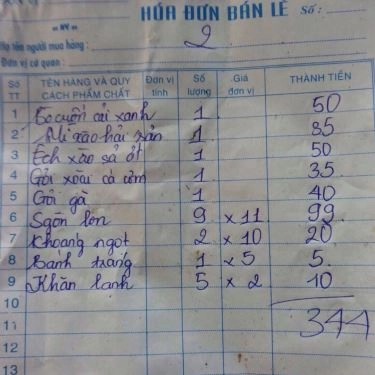 HÓA ĐƠN BÁN LẺ Số:
Họ tên người mua hàng: 2
Đơn vị cơ quan:
Số TT TÊN HÀNG VÀ QUY CÁCH PHẨM CHẤT Đơn vị tính Số lượng Giá đơn vị THÀNH TIỀN
1 Bò cuốn cải xanh 1 50
2 Mì xào hải sản 1 85
3 Ếch xào sả ớt 1 50
4 Gỏi xoài cá cơm 1 35
5 Gỏi gà 1 40
6 Sgòn lon 9 x 11 99
7 Khoang ngọt 2 x 10 20
8 Bánh tráng 1 x 5 5
9 Khăn lạnh 5 x 2 10
10
11 344
12
13